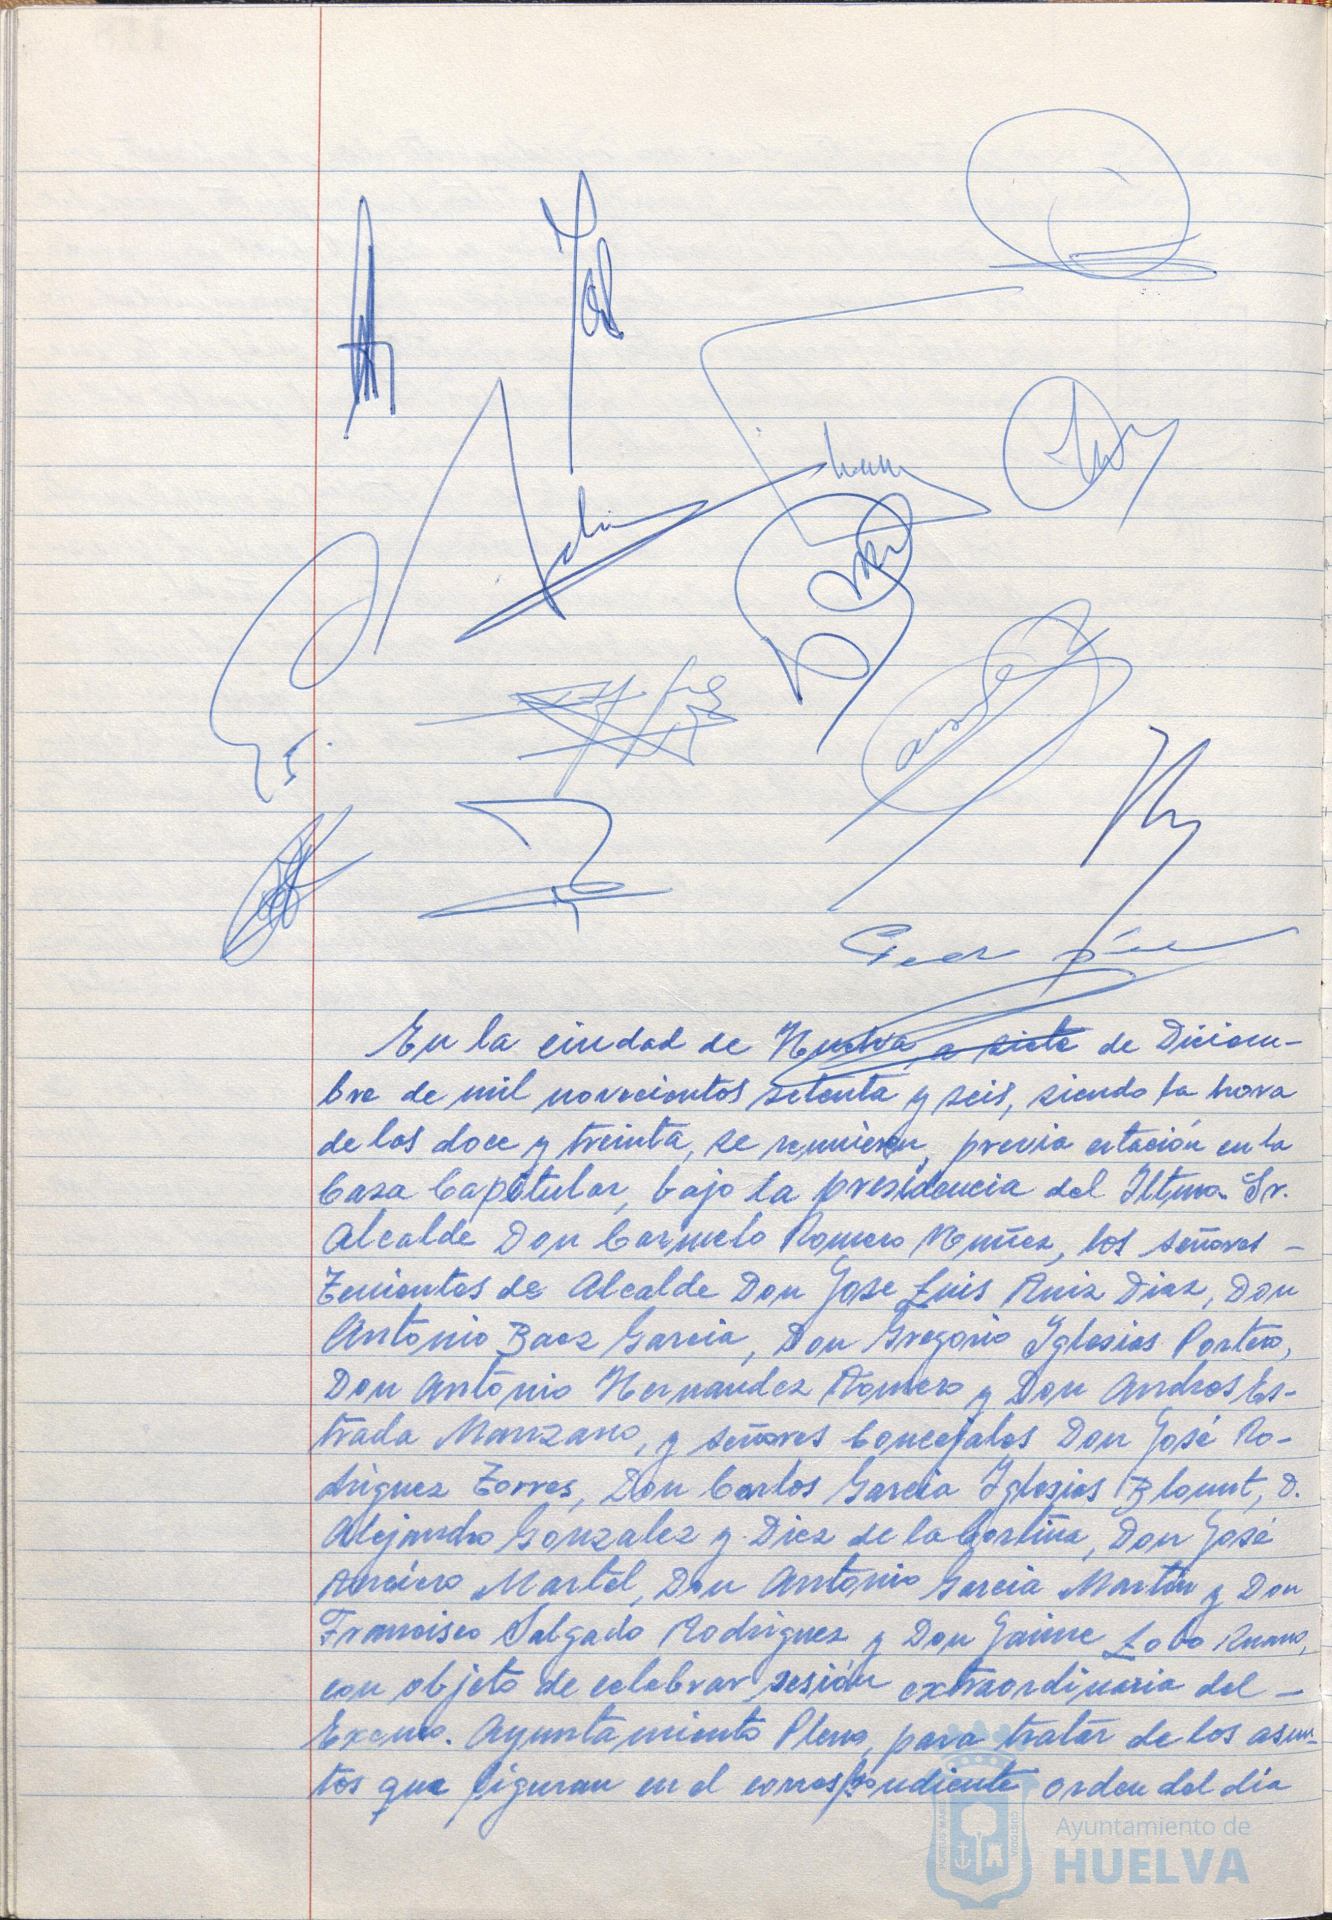 En la ciudad de Huelva, a siete de Diciem-
bre de mil novecientos setenta y seis, siendo la hora
de las doce y treinta, se reunieron, previa citación en la
Casa Capitular, bajo la presidencia del Iltmo. Sr.
Alcalde Don Carmelo Romero Núñez, los señores -
Tenientes de Alcalde Don Jose Luis Ruiz Diaz, Don
Antonio Baez Garcia, Don Gregorio Iglesias Portero,
Don Antonio Hernandez Romero y Don Andres Es-
trada Manzano, y señores Concejales Don José Ro-
driguez Torres, Don Carlos Garcia Iglesias Blount, D.
Alejandro Gonzalez y Diez de la Cortina, Don José
Martel, Don Antonio Garcia Martín y Don
Francisco Salgado Rodriguez y Don Jaime Lobo Ruano,
con objeto de celebrar sesión extraordinaria del -
Excmo. Ayuntamiento Pleno, para tratar de los asun-
tos que figuran en el correspondiente orden del dia
Ayuntamiento de
HUELVA